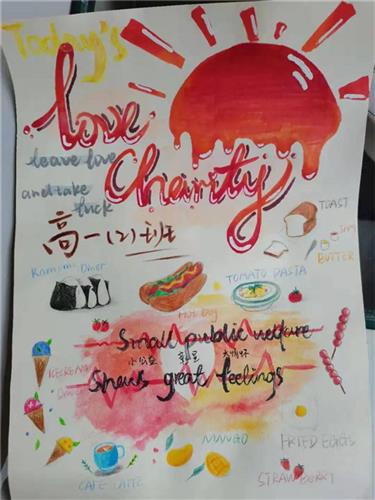 Today's
love
leave love
Charity
and take
luck
高一(2)班
TOAST
BUTTER
TOMATO PASTA
Hot Dog
Small public welfare
小公益
大情怀
Shows great feelings
ICECREAM
MANGO
FRIED EGGS
CAFE LATTE
STRAWBERRY